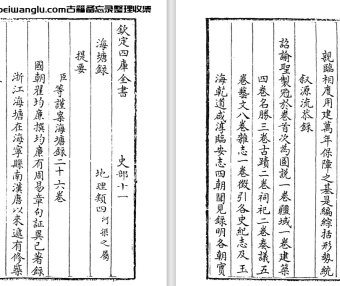 eiwanglu.com古籍备忘录整理收集
欽定四庫全書 史部十一
海塘錄 地理類四 河渠之屬
提要
臣等謹案海塘錄二十六卷
國朝翟均廉撰均廉有周易章句証異已著錄
浙江海塘在海寧縣南漢唐以來遞有修築
親臨相度用建萬年保障之基是編綜括形勢統
叙源流恭錄
詔諭聖製冠於卷首次為圖說一卷疆域一卷建築
四卷名勝卷古蹟二卷祠祀二卷奏議五
卷藝文八卷雜志一卷徵引各史紀志及玉
海乾道咸淳臨安志四朝聞見錄明各朝實